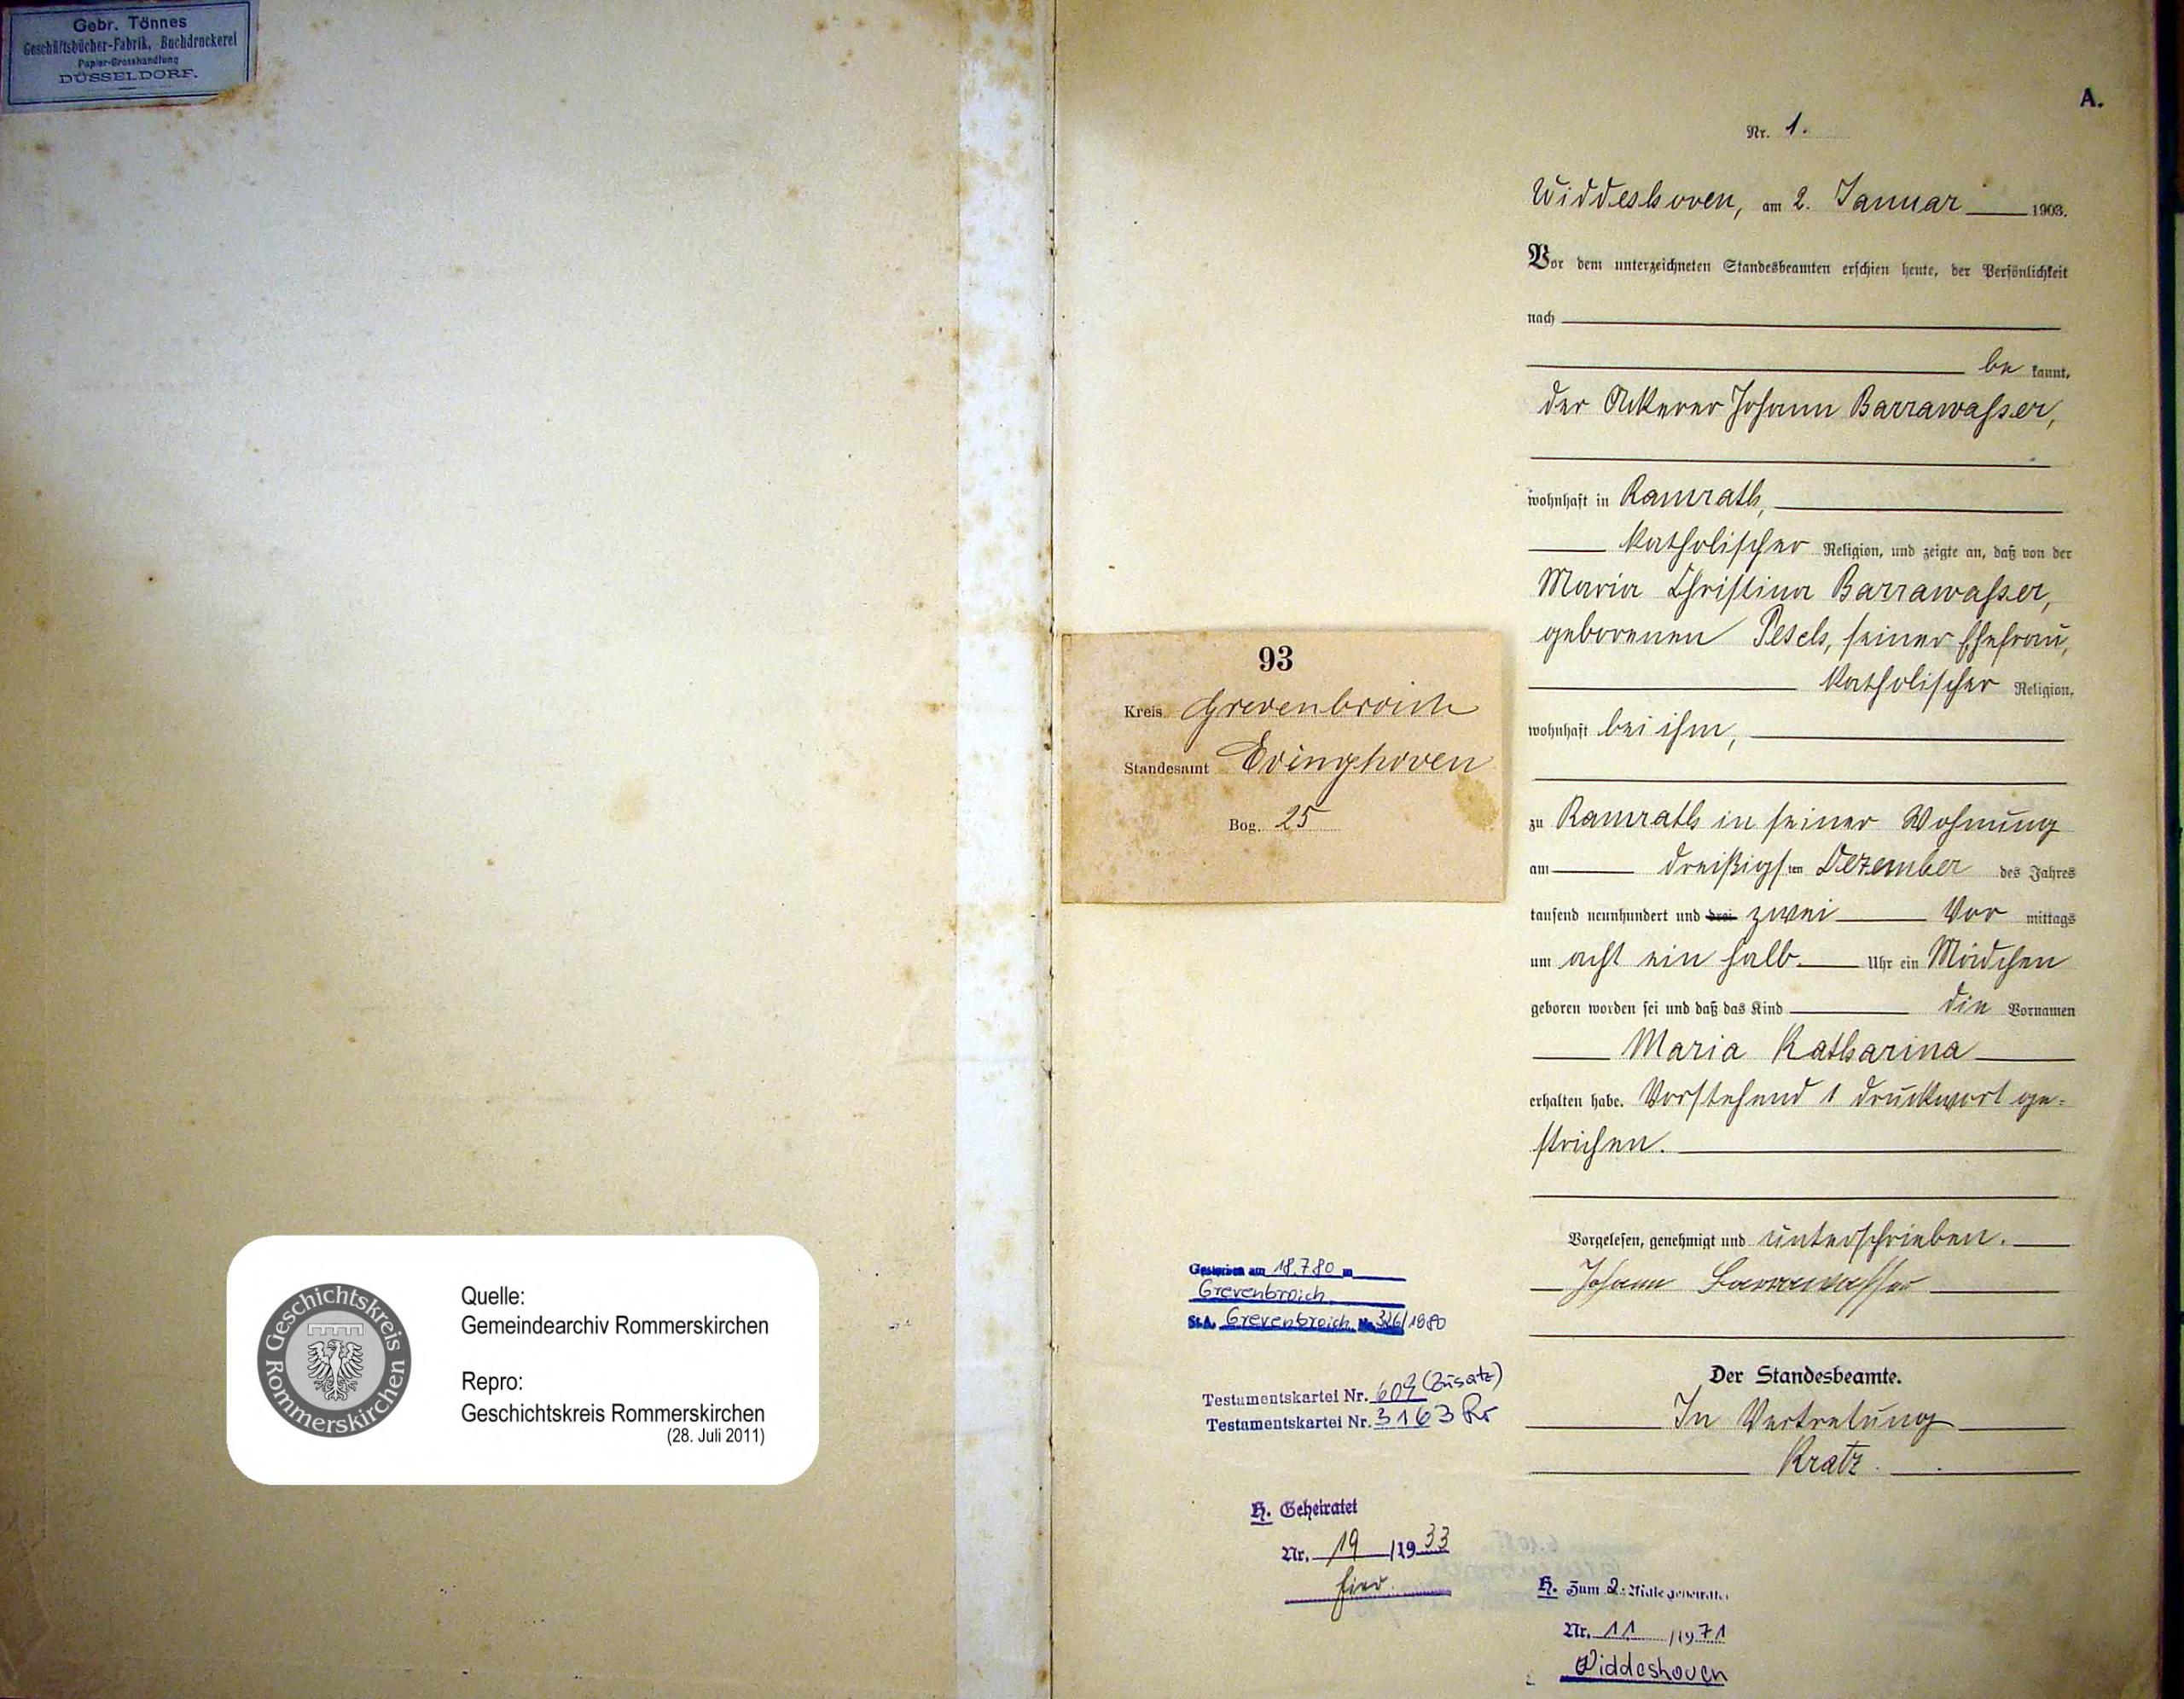 Gebr. Tönnes
Geschäftsbücher-Fabrik, Buchdruckerei
Papier-Grosshandlung
DÜSSELDORF.
A.
Nr. 1.
Widdeshoven, am 2. Januar 1903.
Vor dem unterzeichneten Standesbeamten erschien heute, der Persönlichkeit
nach
be kannt,
der Ackerer Johann Barrawasser,
wohnhaft in Ramrath,
katholischer Religion, und zeigte an, daß von der
Maria Christina Barrawasser,
geborenen Pesch, seiner Ehefrau,
katholischer Religion,
wohnhaft bei ihm,
zu Ramrath in seiner Wohnung
am dreißigsten Dezember des Jahres
tausend neunhundert und drei zwei Vor mittags
um acht ein halb Uhr ein Mädchen
geboren worden sei und daß das Kind die Vornamen
Maria Katharina
erhalten habe. Vorstehend 1 Druckwort ge-
strichen.
Vorgelesen, genehmigt und unterschrieben.
Johann Barrawasser
Der Standesbeamte.
In Vertretung
Kratz.
93
Kreis Grevenbroich
Standesamt Evinghoven
Bog. 25
Gestorben am 18.7.80 in
Grevenbroich
St.A. Grevenbroich Nr. 326/1980
Testamentskartei Nr. 609 (Zusatz)
Testamentskartei Nr. 3163 Rr
H. Geheiratet
Nr. 19 /1933
hier
H. Zum 2. Male geheiratet
Nr. 11 /1971
Widdeshoven
Geschichtskreis Rommerskirchen
Quelle:
Gemeindearchiv Rommerskirchen
Repro:
Geschichtskreis Rommerskirchen
(28. Juli 2011)